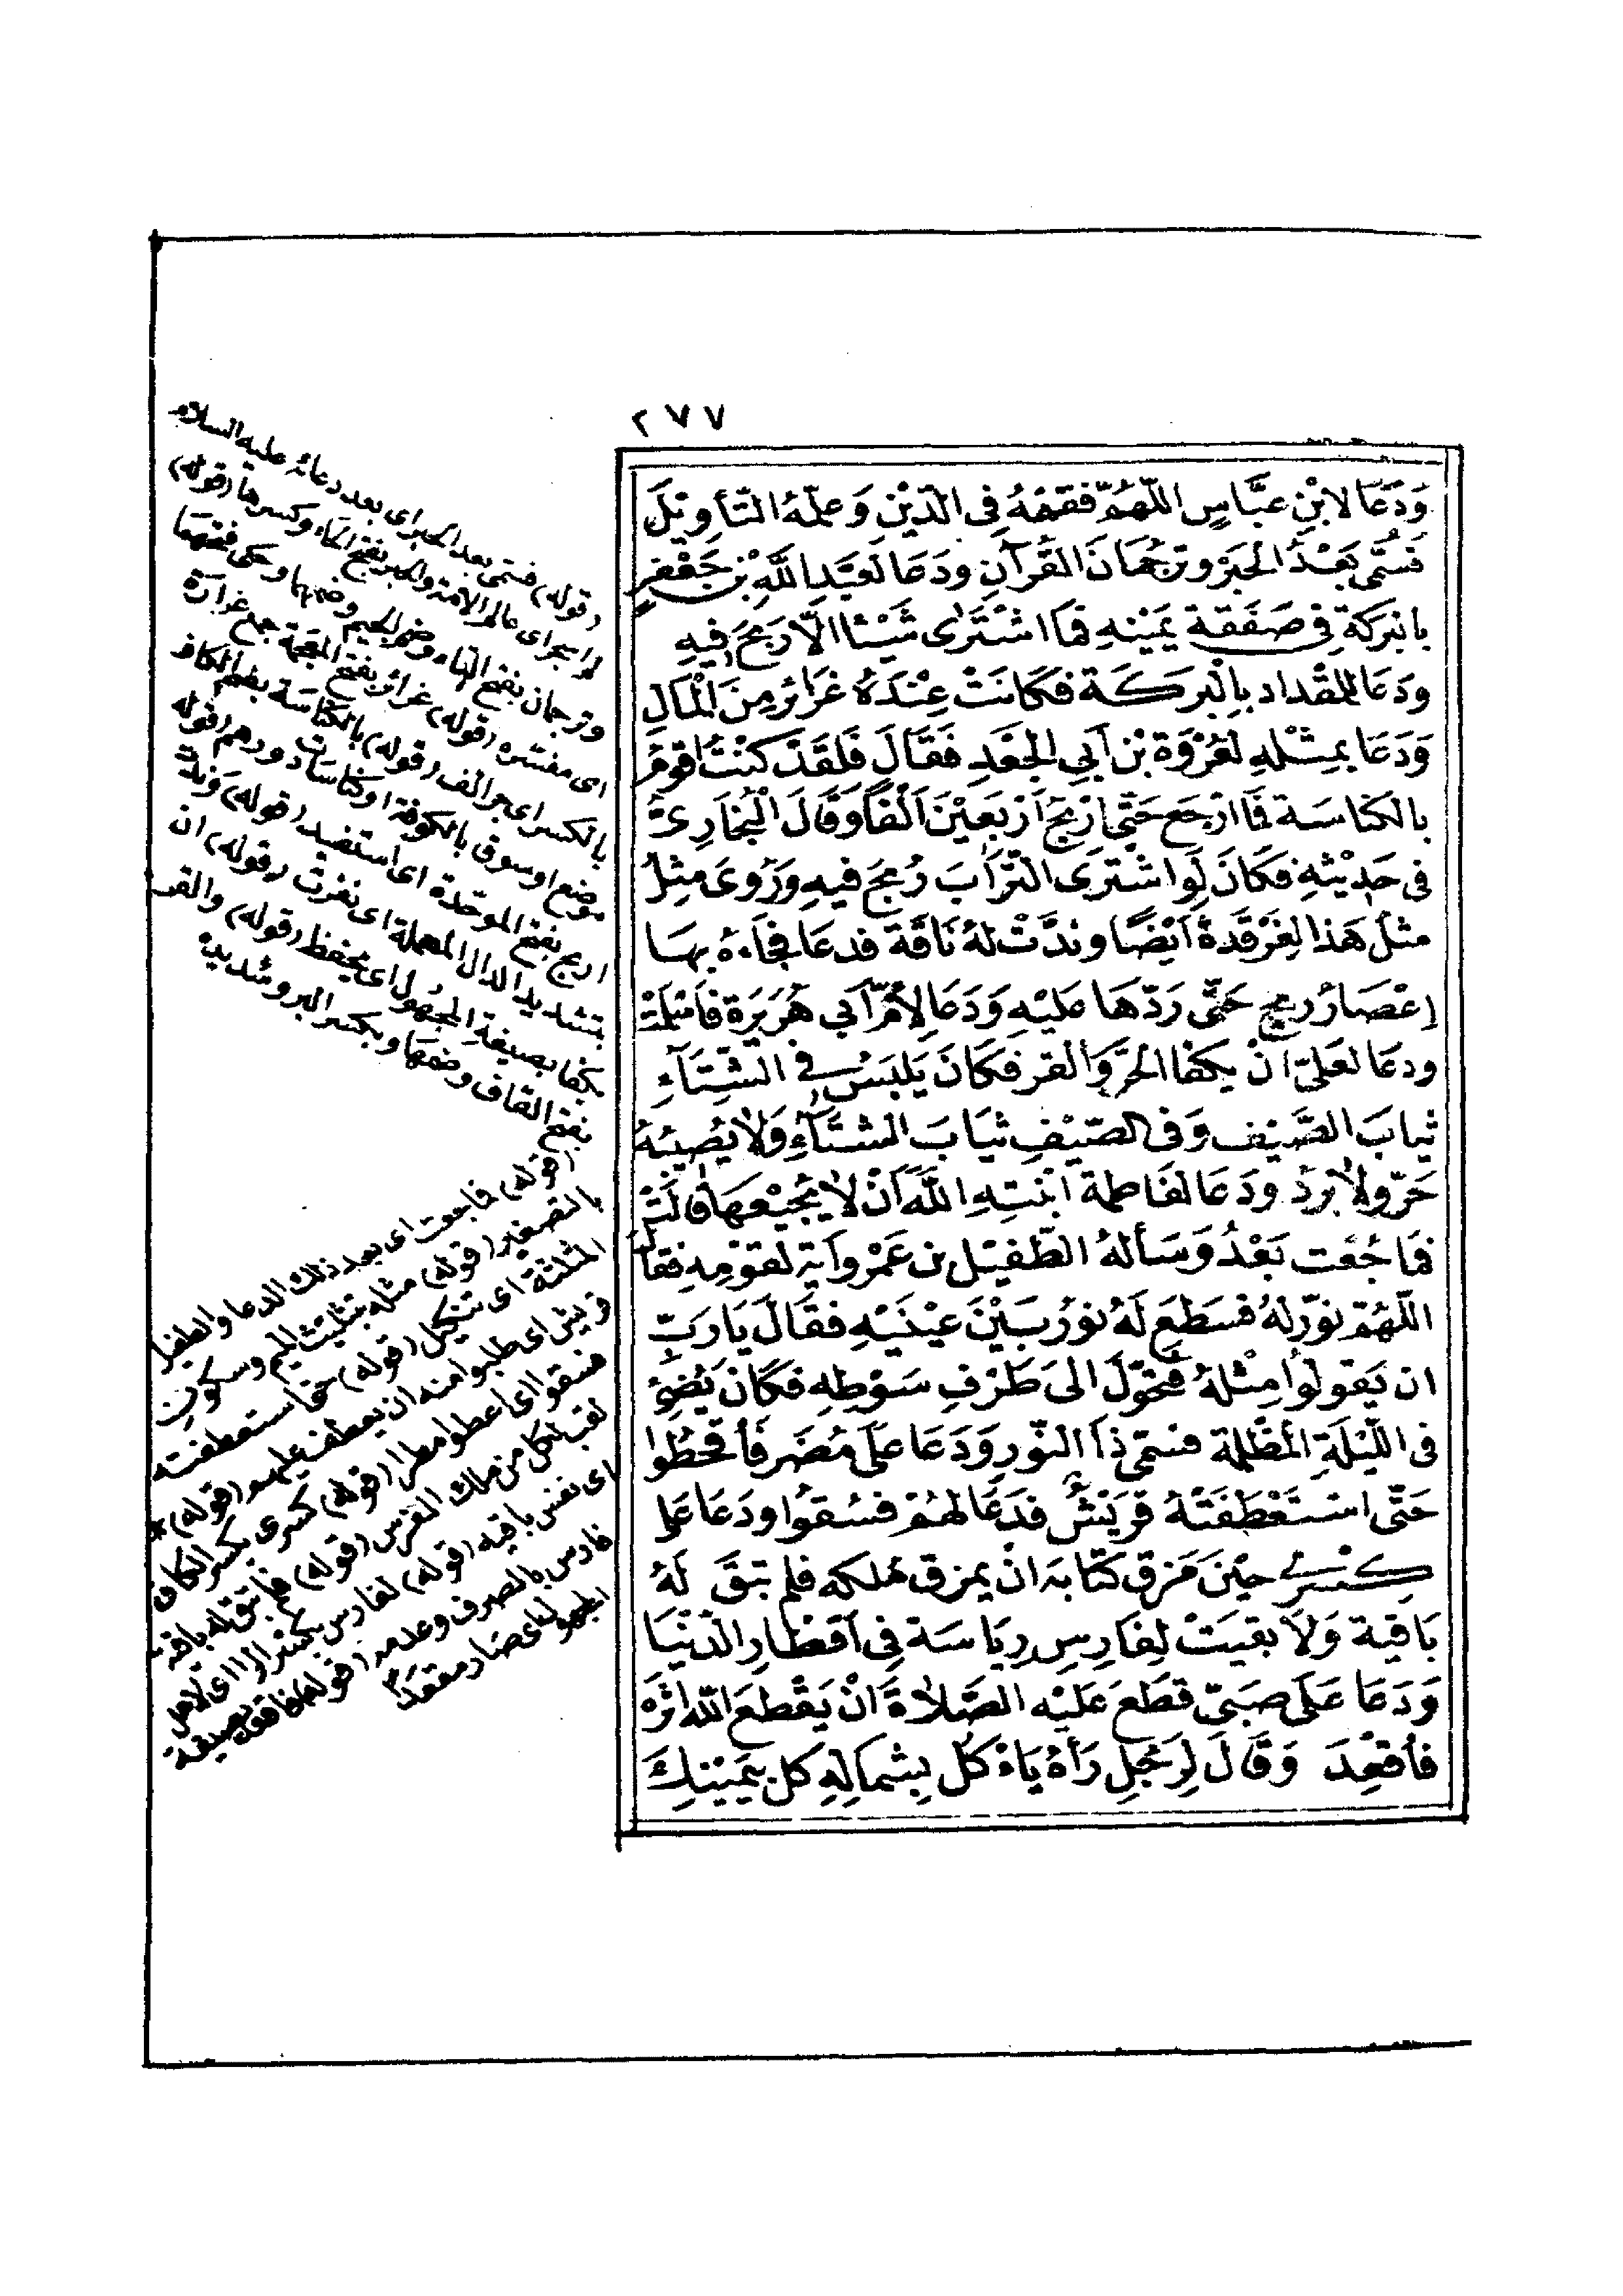 ٢٧٧
وَدَعَا لابْنِ عَبَّاسٍ اللّٰهُمَّ فَقِّهْهُ فِى الدِّيْنِ وَعَلِّمْهُ التَّأوِيْلَ
فَسُمِّىَ بَعْدُ الْحَبَرْ وَتَرْجُمَانَ الْقُرْآنِ وَدَعَا لَعَبْدِ اللَّهِ بْنِ جَعْفَرٍ
بالبَركَةِ فِى صَفَقَةِ يَمِيْنِهِ فَمَا اشْتَرَى شَيْئًا الَّا رَبِحَ فِيهِ
وَدَعَا للمِقْدَاد بِالْبَرَكَة فَكَانَتْ عِنْدَهُ غَرَائِرُ مِنَ الْمَالِ
وَدَعَا بِمِثْلِهِ لَعُرْوَةِ بْنِ اَبِى الْجَعْدِ فَقَالَ فَلَقَدْ كُنْتُ اَقُوْمُ
بالكنَاسَة فَمَا اَرْجَع حَتَّى اَرْبَحَ اَرْبَعِيْنَ اَلْفًا وَقَالَ الْبُخَارِىُّ
فى حَدِيْثِهِ فَكَانَ لَوِ اشْتَرَى التُّرَابَ رُبِحَ فِيهِ وَرُوِىَ مِثِلُ
مثلُ هَذا لِغَرْقَدَةَ اَيْضًا وَندَّتْ لهُ نَاقَة فدعَا فجَاءَهُ بِهَا
اِعْصَارُ رِيحٍ حَتَّى رَدَّهَا عَلَيْهِ وَدَعَا لِاُمِّ اَبِى هُرَيْرَة فَاَسْلَمَتْ
وَدعَا لعَلِىّ انْ يكفَا الْحَرَّ وَالْقر فكَانَ يَلْبَسُ فى الشِّتَاءِ
ثيابَ الصَّيْف وَفى الصّيْفِ ثيَابَ الشتَاءِ وَلَا يُصِيْبُهُ
حَرّ وَلَا بَرْدٌ وَدَعَا لفَاطمة ابْنتِهِ اللَّهَ اَنْ لَا يُجِيْعَهَا قَالَتْ
فَمَا جُعْت بَعْدُ وَسَألهُ الطّفيْل بن عَمْرو آيَة لقَوْمِهِ فقَالَ
اللّٰهُمّ نوّر لهُ فسَطعَ لَهُ نُورٌ بَيْنَ عَيْنَيْهِ فقَالَ يَا رَبِّ
ان يَقولُوا مِثْلهُ فَتَحَوّلَ الىَ طَرَفِ سَوْطِهِ فكَانَ يُضِئُ
فى اللّيْلَةِ المُظْلِمة فسمّى ذَا النّورِ وَدَعَا عَلَى مُضَرَ فَأُقْحِطُوا
حَتَّى اسْتَعْطَفَتْهُ قُرَيْشٌ فدَعَا لهُمْ فسُقوُا وَدَعَا عَلىَ
كِسْرىٰ حِيْنَ مَزّق كِتَابَهُ انْ يمزق مُلكه فلم تبْقَ لَهُ
بَاقِية وَلَا بَقِيَتْ لِفَارِسٍ رِيَاسَة فِى اَقْطَارِ الدُّنْيَا
وَدَعَا عَلَى صَبىّ قَطَعَ عَلَيْهِ الصَّلَاةَ اَنْ يَقْطعَ اللّٰه اثرَهُ
فأُقْعِدَ وَقَالَ لِرَجُلٍ رَآهُ يَاْكُل بِشِمَالِهِ كُل بِيَمِيْنِكَ
(قوله) فسمّى بعد الحبر اى بعد دعائه عليه السلام
اى عالم الامة والحبر بفتح الحاء وكسرها (قوله)
وترجمان بفتح التاء وضم الجيم وضمهما وحكى فتحهما
اى مفسّر (قوله) غرائر بفتح المعجمة جمع غرارة
بالكسر اى (قوله) بالكناسة بضم الكاف
موضع او سوق بالكوفة (قوله)
اربح بفتح الموحدة اى استفيد (قوله) وندت
بتشديد الدال المهملة اى نفرت (قوله) ان
يكفا بصيغة المجهول اى يحفظ (قوله) والقر
بفتح القاف وضمها وبكسر البرد شديد
(قوله) فما جعت اى بعد ذلك الدعا والطفيل
بالتصغير (قوله) مثله بتثليث الميم وسكون
المثلثة اى تنكيل (قوله) حتى استعطفته
قريش اى طلبوا منه ان يعطف عليهم (قوله)
فسقوا اى اعطوا مطرا (قوله) كسرى بكسر الكاف
لقب لكل من ملك الفرس (قوله) فلم تبق له باقية
اى نفس باقيه (قوله) لفارس بكسر الراء اى لاهل
فارس بالصرف وعدمه (قوله) فاقعد بصيغة
المجهول اى صار مقعدا